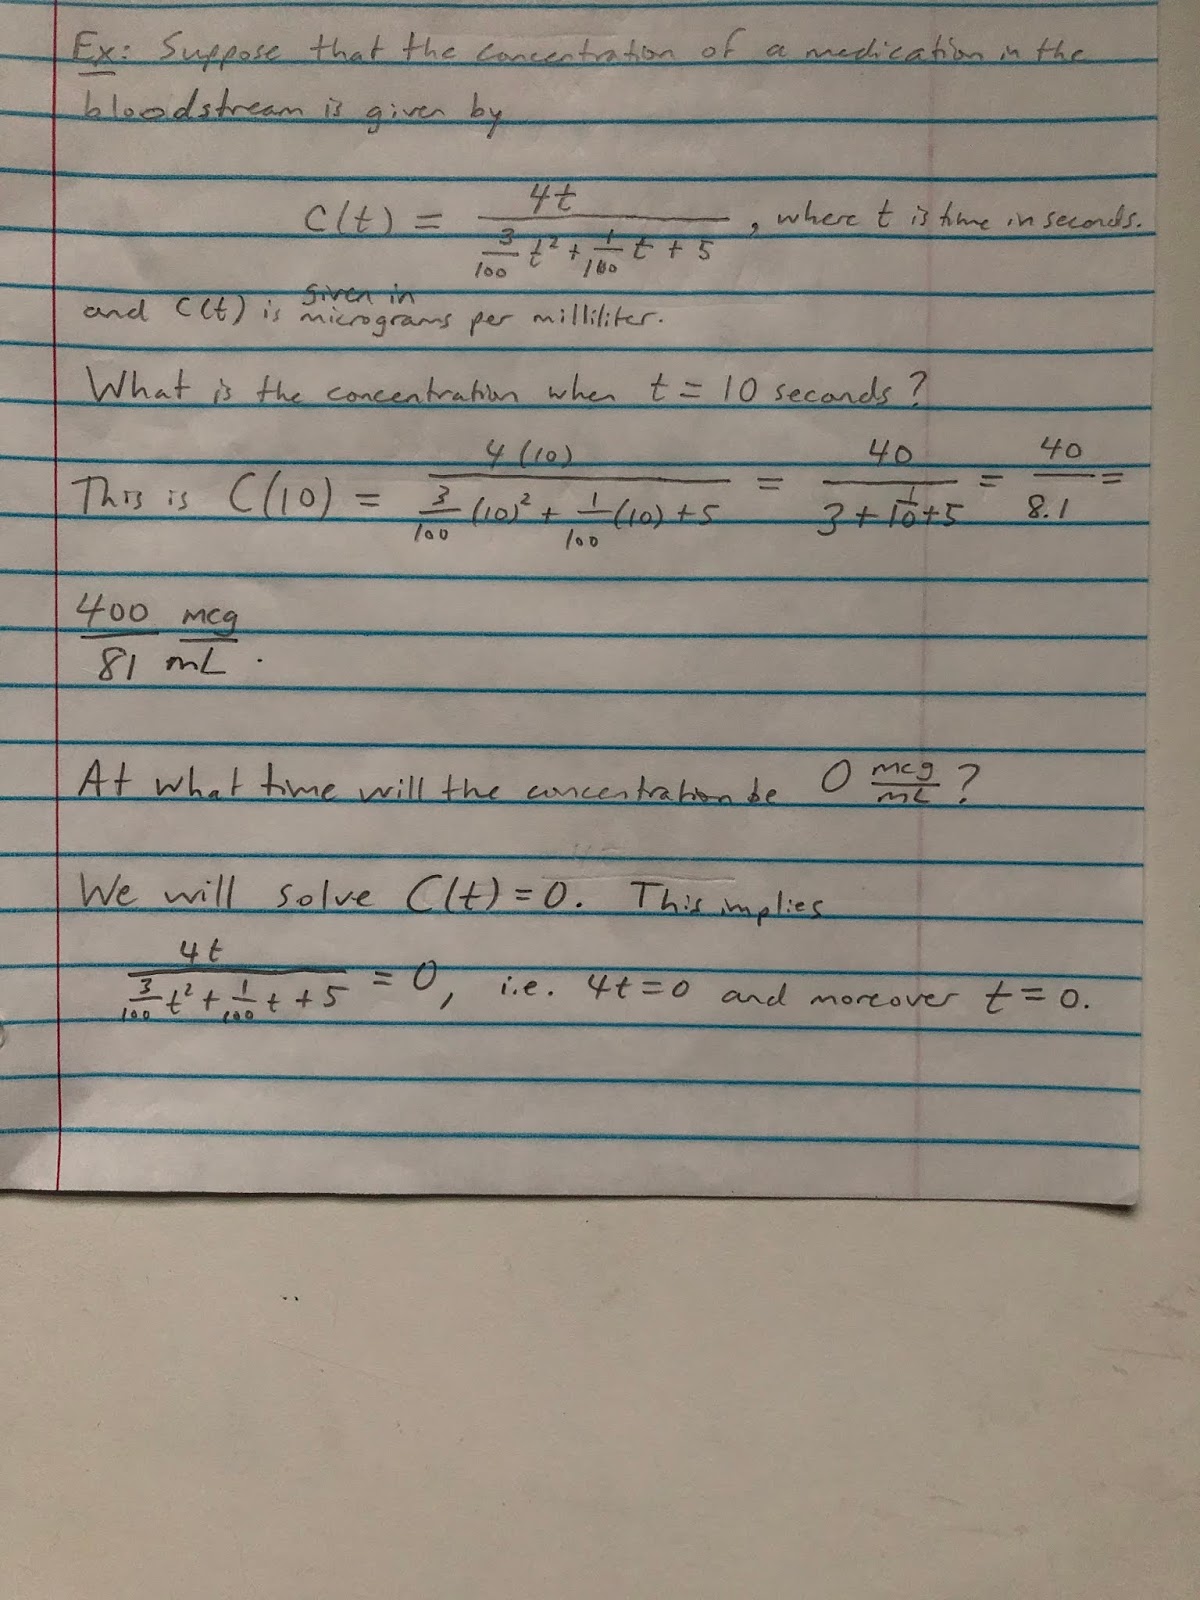 Ex: Suppose that the concentration of a medication in the
bloodstream is given by
C(t) = 4t / (3/100 t² + 1/100 t + 5), where t is time in seconds.
and C(t) is given in micrograms per milliliter.
What is the concentration when t = 10 seconds?
This is C(10) = 4(10) / (3/100 (10)² + 1/100 (10) + 5) = 40 / (3 + 1/10 + 5) = 40/8.1 =
400/81 mcg/mL.
At what time will the concentration be 0 mcg/mL?
We will solve C(t) = 0. This implies
4t / (3/100 t² + 1/100 t + 5) = 0, i.e. 4t = 0 and moreover t = 0.